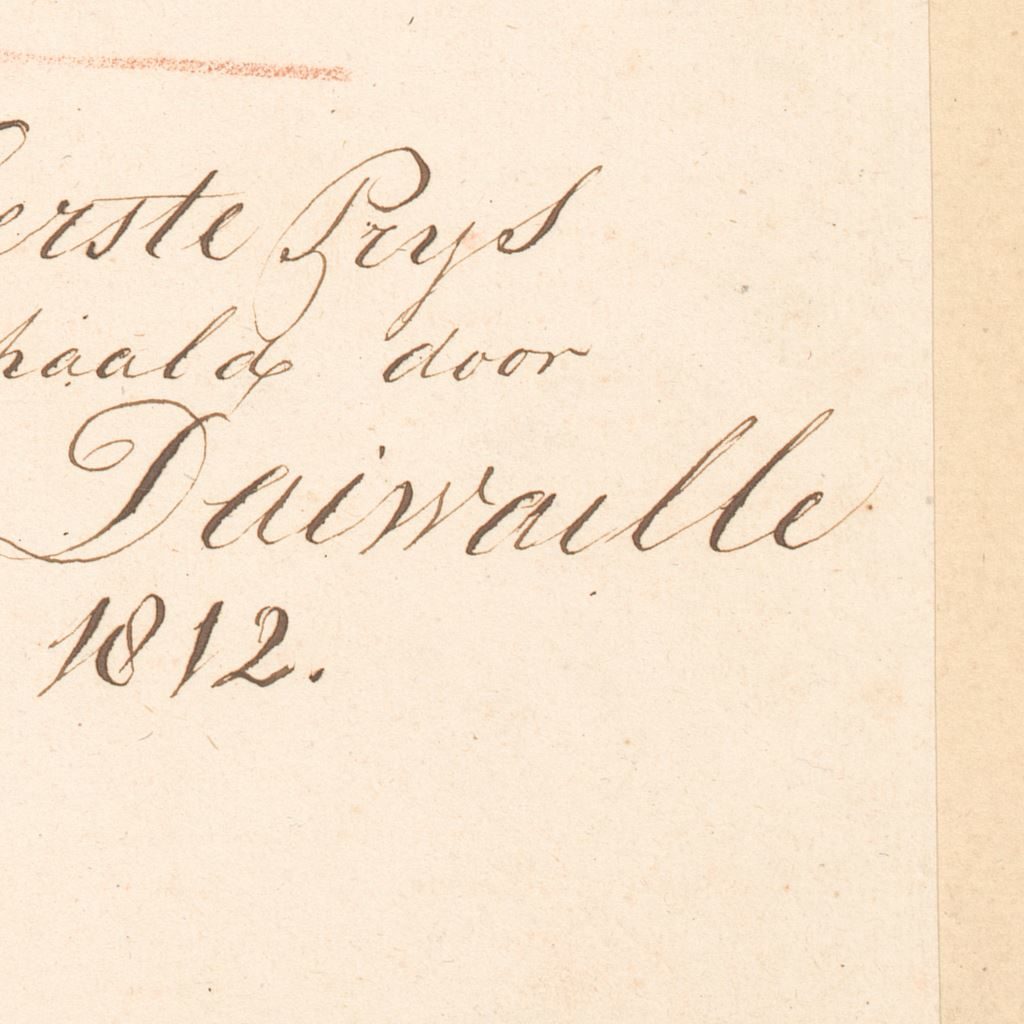 eerste Prys
haald door
Daiwaille
1812.